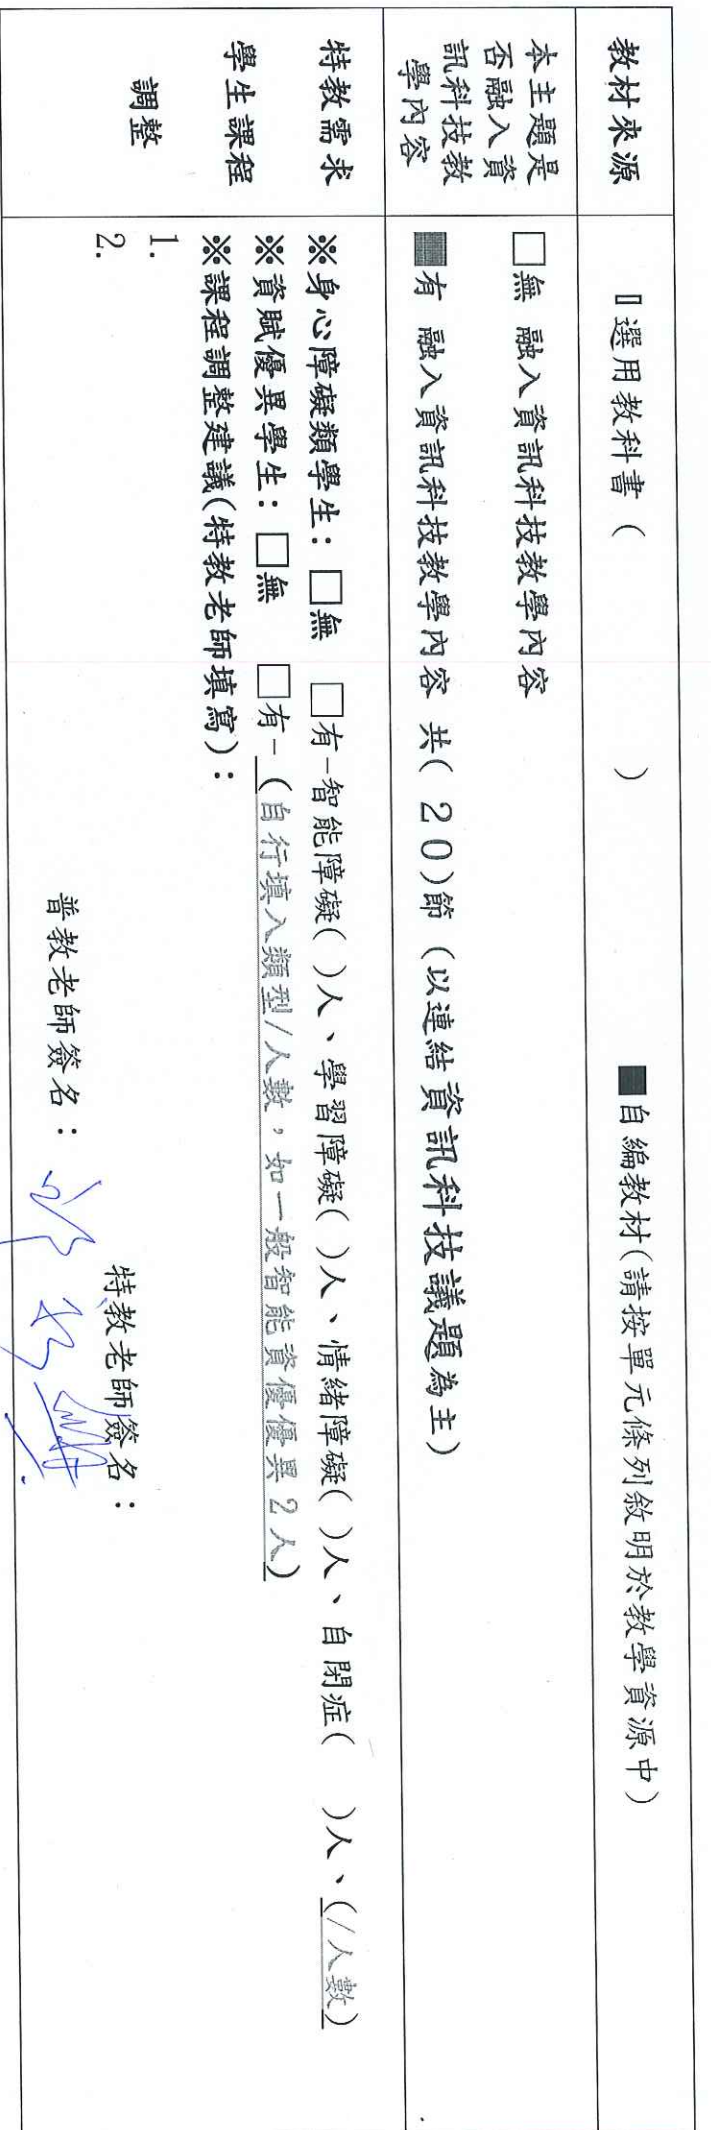 教材來源
□選用教科書（　　　　）　　　■自編教材(請按單元條列敘明於教學資源中)
本主題是
否融入資
訊科技教
學內容
□無 融入資訊科技教學內容
■有 融入資訊科技教學內容 共(２０)節 (以連結資訊科技議題為主)
特教需求
學生課程
調整
※身心障礙類學生：□無 □有-智能障礙( )人、學習障礙( )人、情緒障礙( )人、自閉症(　)人、(/人數)
※資賦優異學生：□無 □有-(自行填入類型/人數，如一般智能資優優異2人)
※課程調整建議(特教老師填寫)：
1.
2.
特教老師簽名：
普教老師簽名：